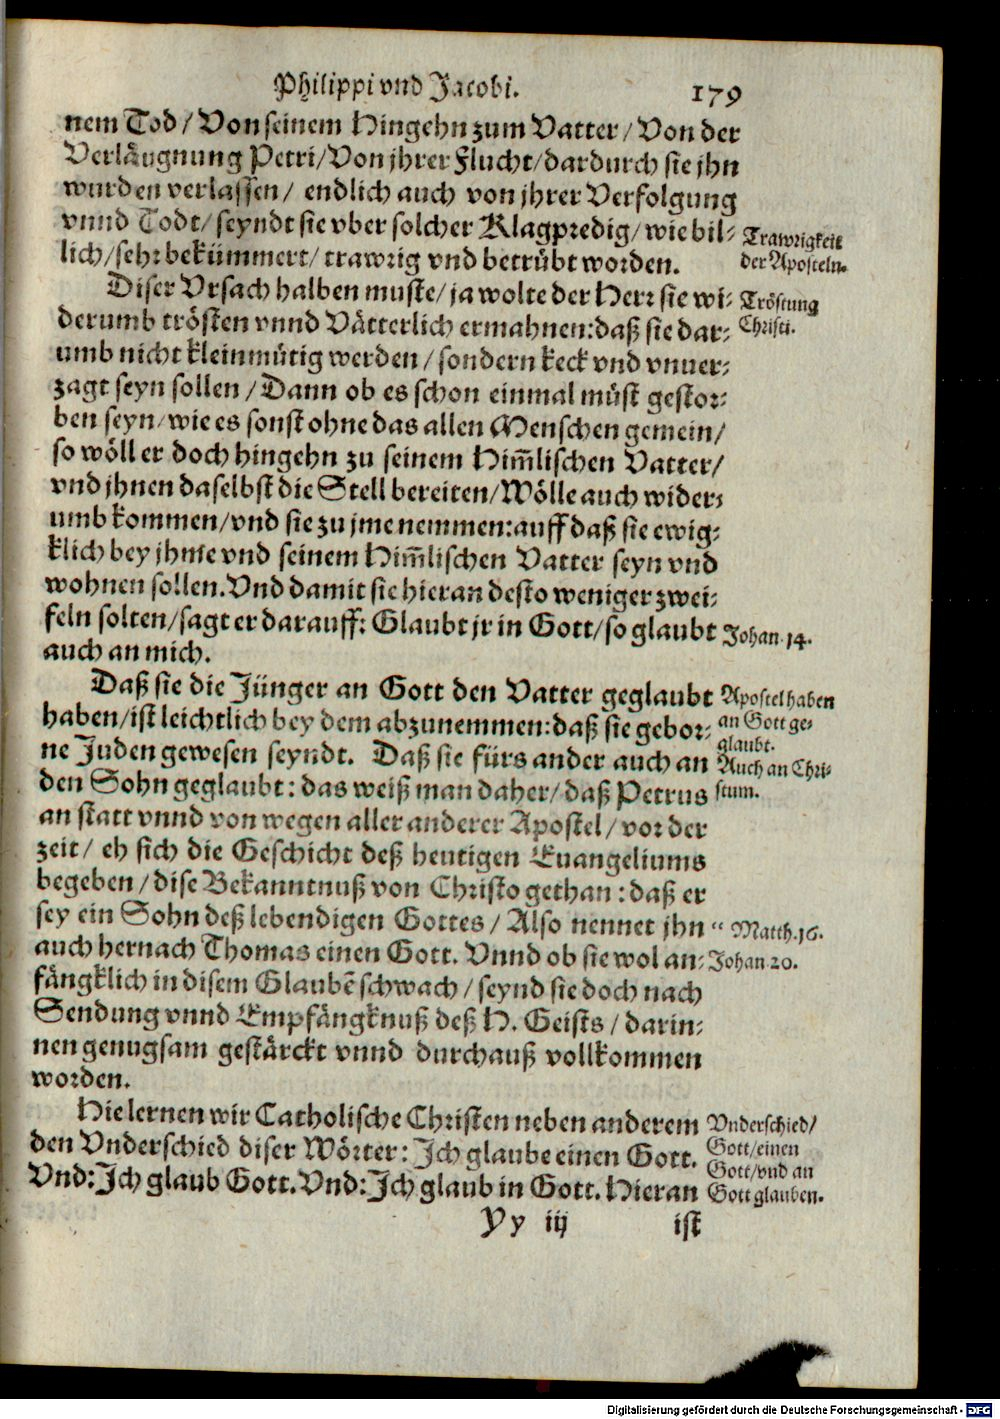 Philippi vnd Jacobi. 179
nem Tod / Von seinem Hingehn zum Vatter / Von der
Verläugnung Petri / Von jhrer Flucht / dardurch sie jhn
wurden verlassen / endlich auch von jhrer Verfolgung
vnnd Todt / seyndt sie vber solcher Klagpredig / wie bil-
lich / sehr bekümmert / trawrig vnd betrübt worden.
Trawrigkeit
der Aposteln.
Diser Vrsach halben muste / ja wolte der Herr sie wi-
derumb trösten vnnd Vätterlich ermahnen: daß sie dar-
umb nicht kleinmütig werden / sondern keck vnd vnuer-
zagt seyn sollen / Dann ob es schon einmal müst gestor-
ben seyn / wie es sonst ohne das allen Menschen gemein /
so wöll er doch hingehn zu seinem Him̃lischen Vatter /
vnd jhnen daselbst die Stell bereiten / Wölle auch wider-
umb kommen / vnd sie zu jme nemmen: auff daß sie ewig-
klich bey jhme vnd seinem Him̃lischen Vatter seyn vnd
wohnen sollen. Vnd damit sie hieran desto weniger zwei-
feln solten / sagt er darauff: Glaubt jr in Gott / so glaubt
auch an mich.
Tröstung
Christi.
Johan. 14.
Daß sie die Jünger an Gott den Vatter geglaubt
haben / ist leichtlich bey dem abzunemmen: daß sie gebor-
ne Juden gewesen seyndt. Daß sie fürs ander auch an
den Sohn geglaubt: das weiß man daher / daß Petrus
an statt vnnd von wegen aller anderer Apostel / vor der
zeit / eh sich die Geschicht deß heutigen Euangeliums
begeben / dise Bekanntnuß von Christo gethan: daß er
sey ein Sohn deß lebendigen Gottes / Also nennet jhn
auch hernach Thomas einen Gott. Vnnd ob sie wol an-
fängklich in disem Glaubẽ schwach / seynd sie doch nach
Sendung vnnd Empfängknuß deß H. Geists / darin-
nen genugsam gestärckt vnnd durchauß vollkommen
worden.
Apostel haben
an Gott ge-
glaubt.
Auch an Chri-
stum.
“ Matth. 16.
Johan. 20.
Hie lernen wir Catholische Christen neben anderem
den Vnderschied diser Wörter: Ich glaube einen Gott.
Vnd: Ich glaub Gott. Vnd: Ich glaub in Gott. Hieran
Vnderschied /
Gott / einen
Gott / vnd an
Gott glauben.
Yy iij ist
Digitalisierung gefördert durch die Deutsche Forschungsgemeinschaft - DFG